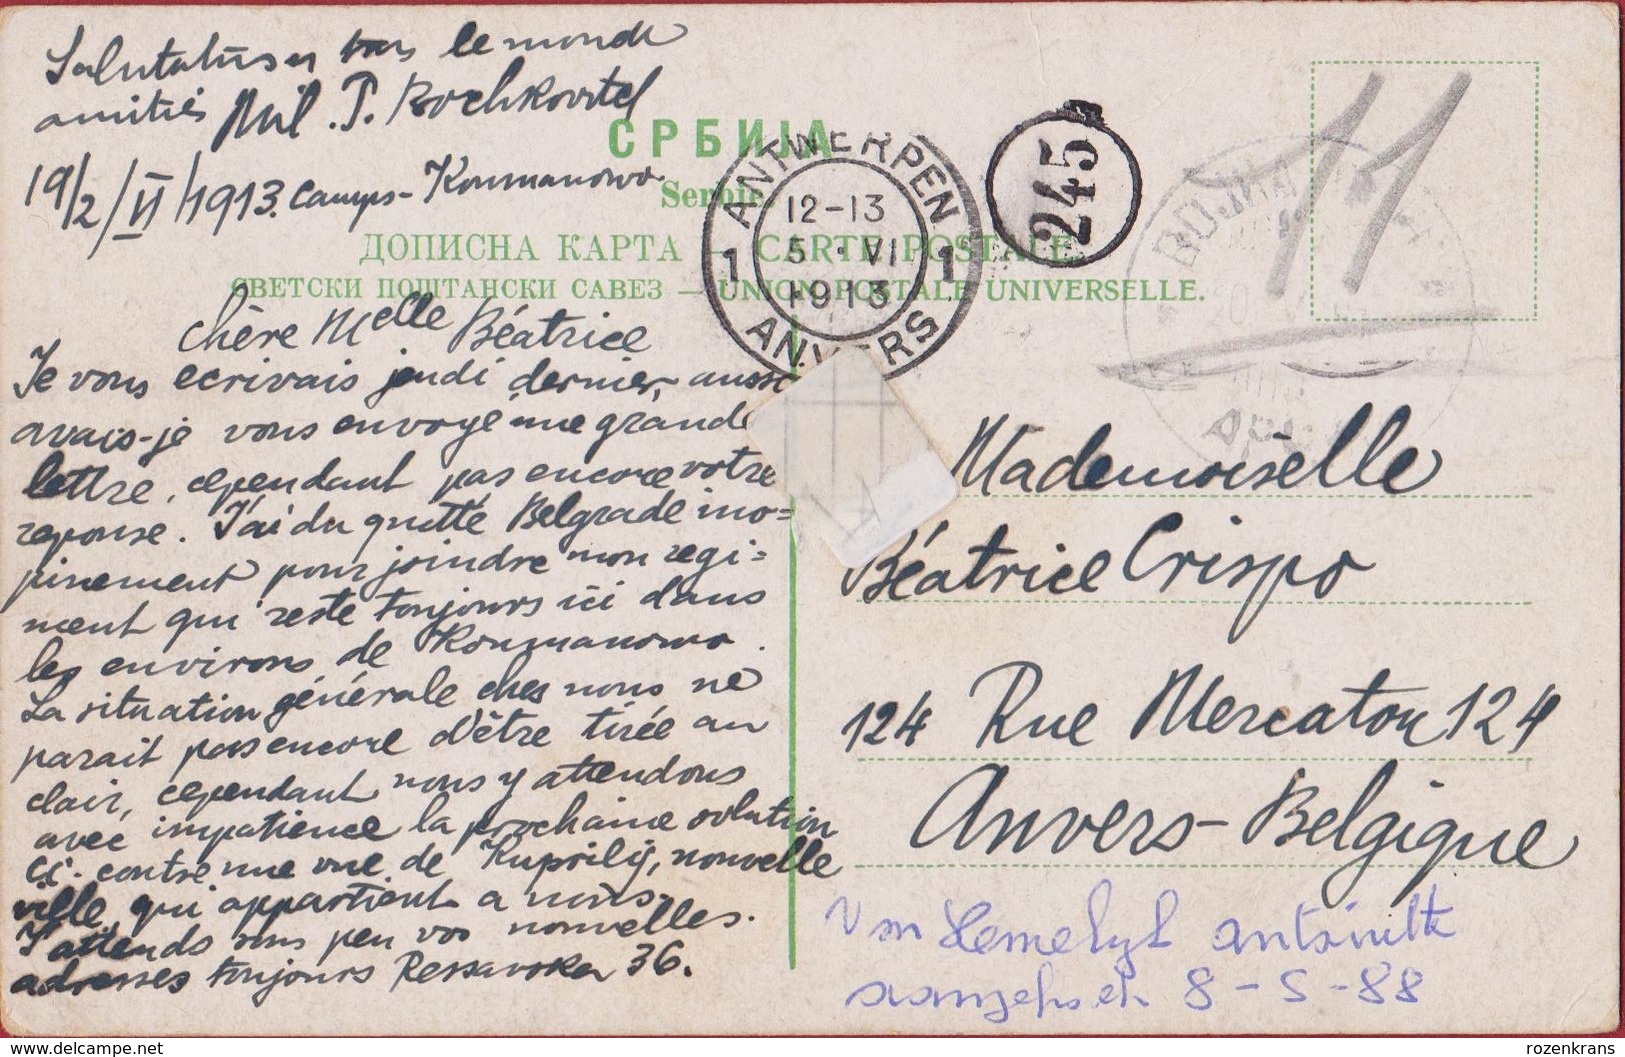 Salutations a tous le monde
amitiés Mil. P.
19/2/VI/1913. Camps-Koumanowo
СРБИЈА
Serbie
ДОПИСНА КАРТА — CARTE POSTALE
СВЕТСКИ ПОШТАНСКИ САВЕЗ — UNION POSTALE UNIVERSELLE.
ANTWERPEN
1 12-13 1
5 · VI
1913
ANVERS
245
11
Chère Melle Béatrice
Je vous ecrivais jeudi dernier, aussi
avais-je vous envoyé une grande
lettre, cependant pas encore votre
reponse. J'ai du quitté Belgrade ino=
pinement pour joindre mon regi=
ment qui reste toujours ici dans
les environs de Koumanowo.
La situation générale ches nous ne
parait pas encore d'être tirée au
clair, cependant nous y attendons
avec impatience la prochaine solution
Ci-contre une vue de Kuprilij, nouvelle
ville, qui appartient a nous.
J'attends sous peu vos nouvelles.
adresses toujours Ressavska 36.
Mademoiselle
Béatrice Crispo
124 Rue Mercator 124
Anvers-Belgique
Van
8-5-88
https://www.delcampe.net
rozenkrans